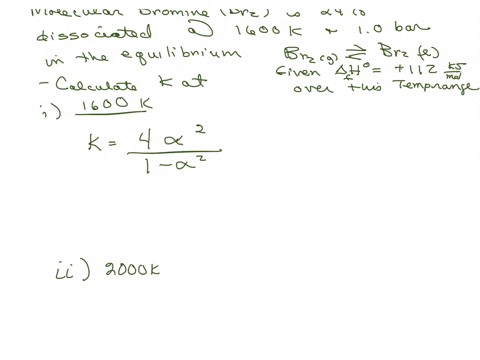 Molecular Bromine (Br2) is 24%
dissociated @ 1600 K & 1.0 bar
in the equilibrium Br2(g) ⇄ Br2(l)
Given ΔH° = +112 kJ/mol
over this Temp range
- Calculate K at
i) 1600 K
K = 4 α² / 1 - α²
ii) 2000K